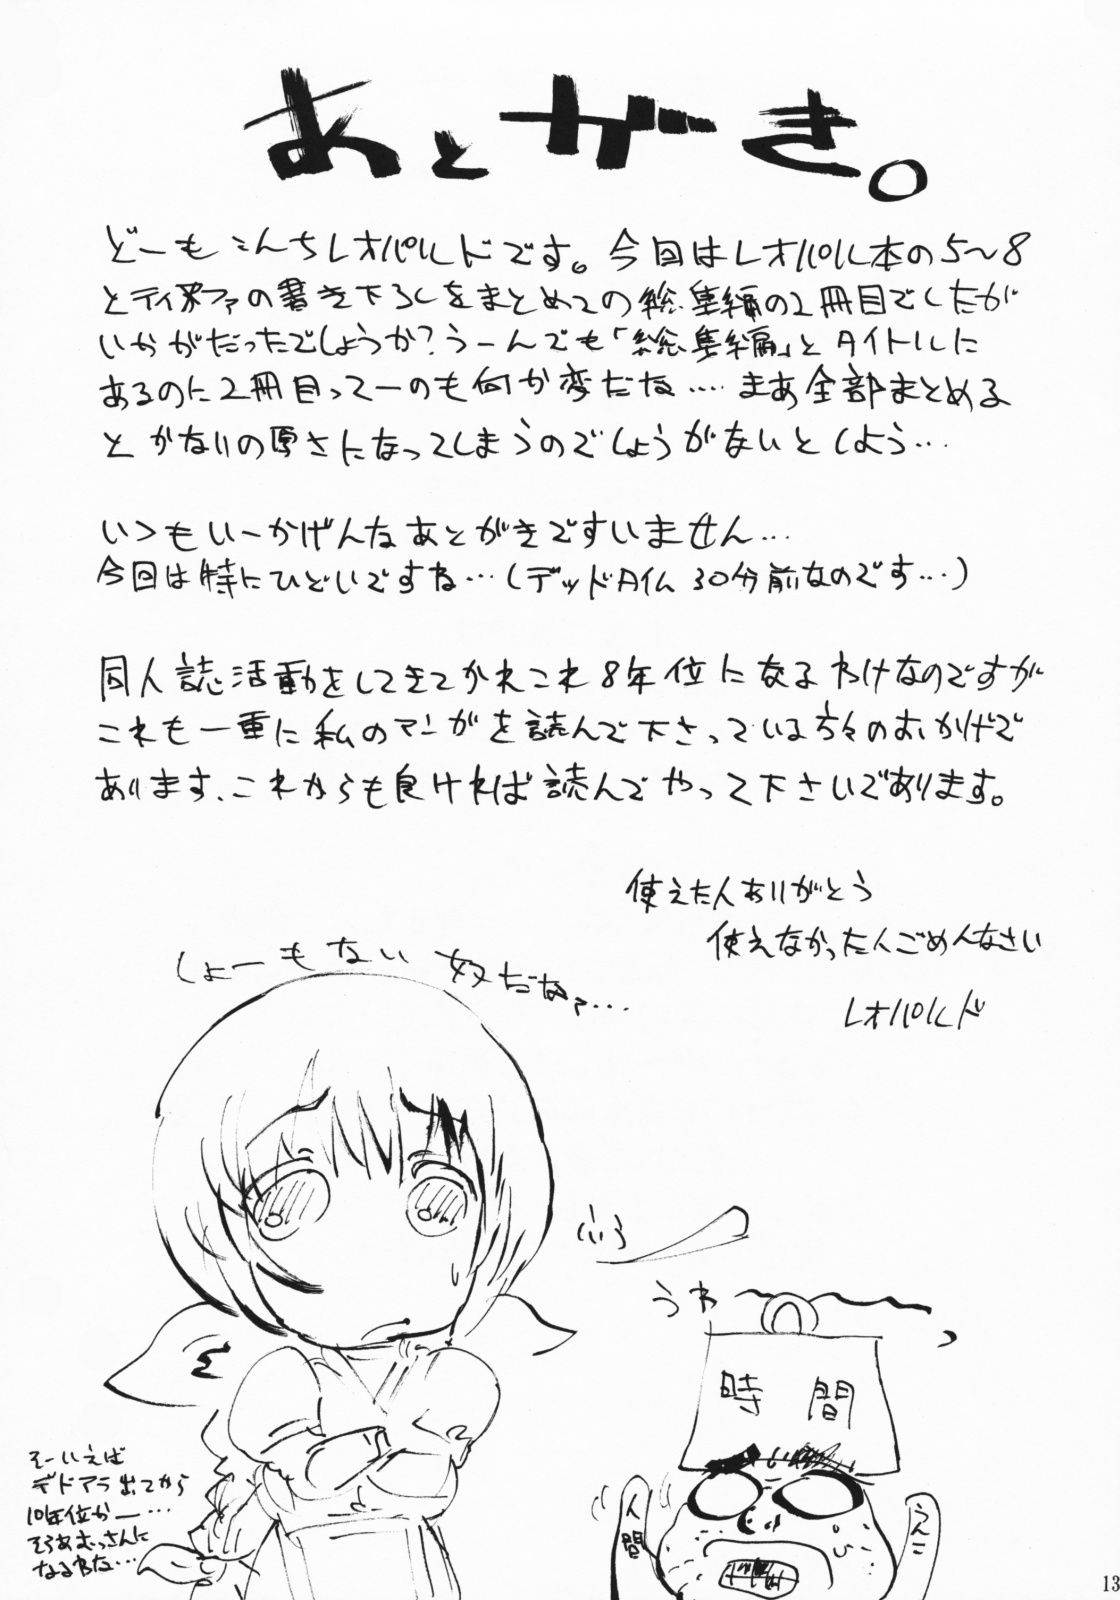 あとがき。
どーもこんちレオパルドです。今回はレオパル本の5〜8
とティファの書き下ろしをまとめての総集編の2冊目でしたが
いかがだったでしょうか？うーんでも「総集編」とタイトルに
あるのに2冊目ってーのも何か変だな…… まあ全部まとめる
とかないの厚さになってしまうのでしょうがないとしよう…
いつもいーかげんなあとがきですいません…
今回は特にひどいですね…(デッドタイム30分前なのです…)
同人誌活動をしてきてかれこれ8年位になるわけなのですが
これも一重に私のマンガを読んで下さっている方々のおかげで
あります、これからも良ければ読んでやって下さいであります。
使えた人ありがとう
使えなかった人ごめんなさい
レオパルド
しょーもない奴だなァ…
ふぅ
うわ
時間
人間
そーいえば
デドアラ出てから
10年位かー…
そろあむっさんに
なるわな…
13